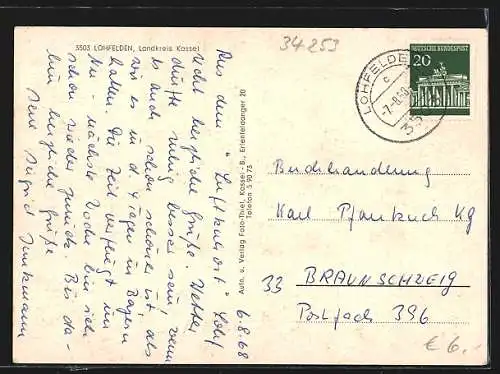 3503 LOHFELDEN, Landkreis Kassel
Aus dem "Luftkurort" Lohf.
recht herzliche Grüße. Wetter
dürfte ruhig besser sein, wenn
es auch schon schöner ist als
wir es in d. 4 Tagen in Bayern
hatten. Die Zeit verfliegt im
Nu - nächste Woche bin ich
schon wieder zurück. Bis da-
hin herzliche Grüße
Ihre Sigrid
6.8.68
Aufn. u. Verlag Foto-Thiel, Kassel-B., Erfensteinanger 20
Telefon 5 90 75
34253
LOHFELDEN
DEUTSCHE BUNDESPOST
20
Buchhandlung
Karl Pfankuch KG
33 BRAUNSCHWEIG
Postfach 396
€ 6,-